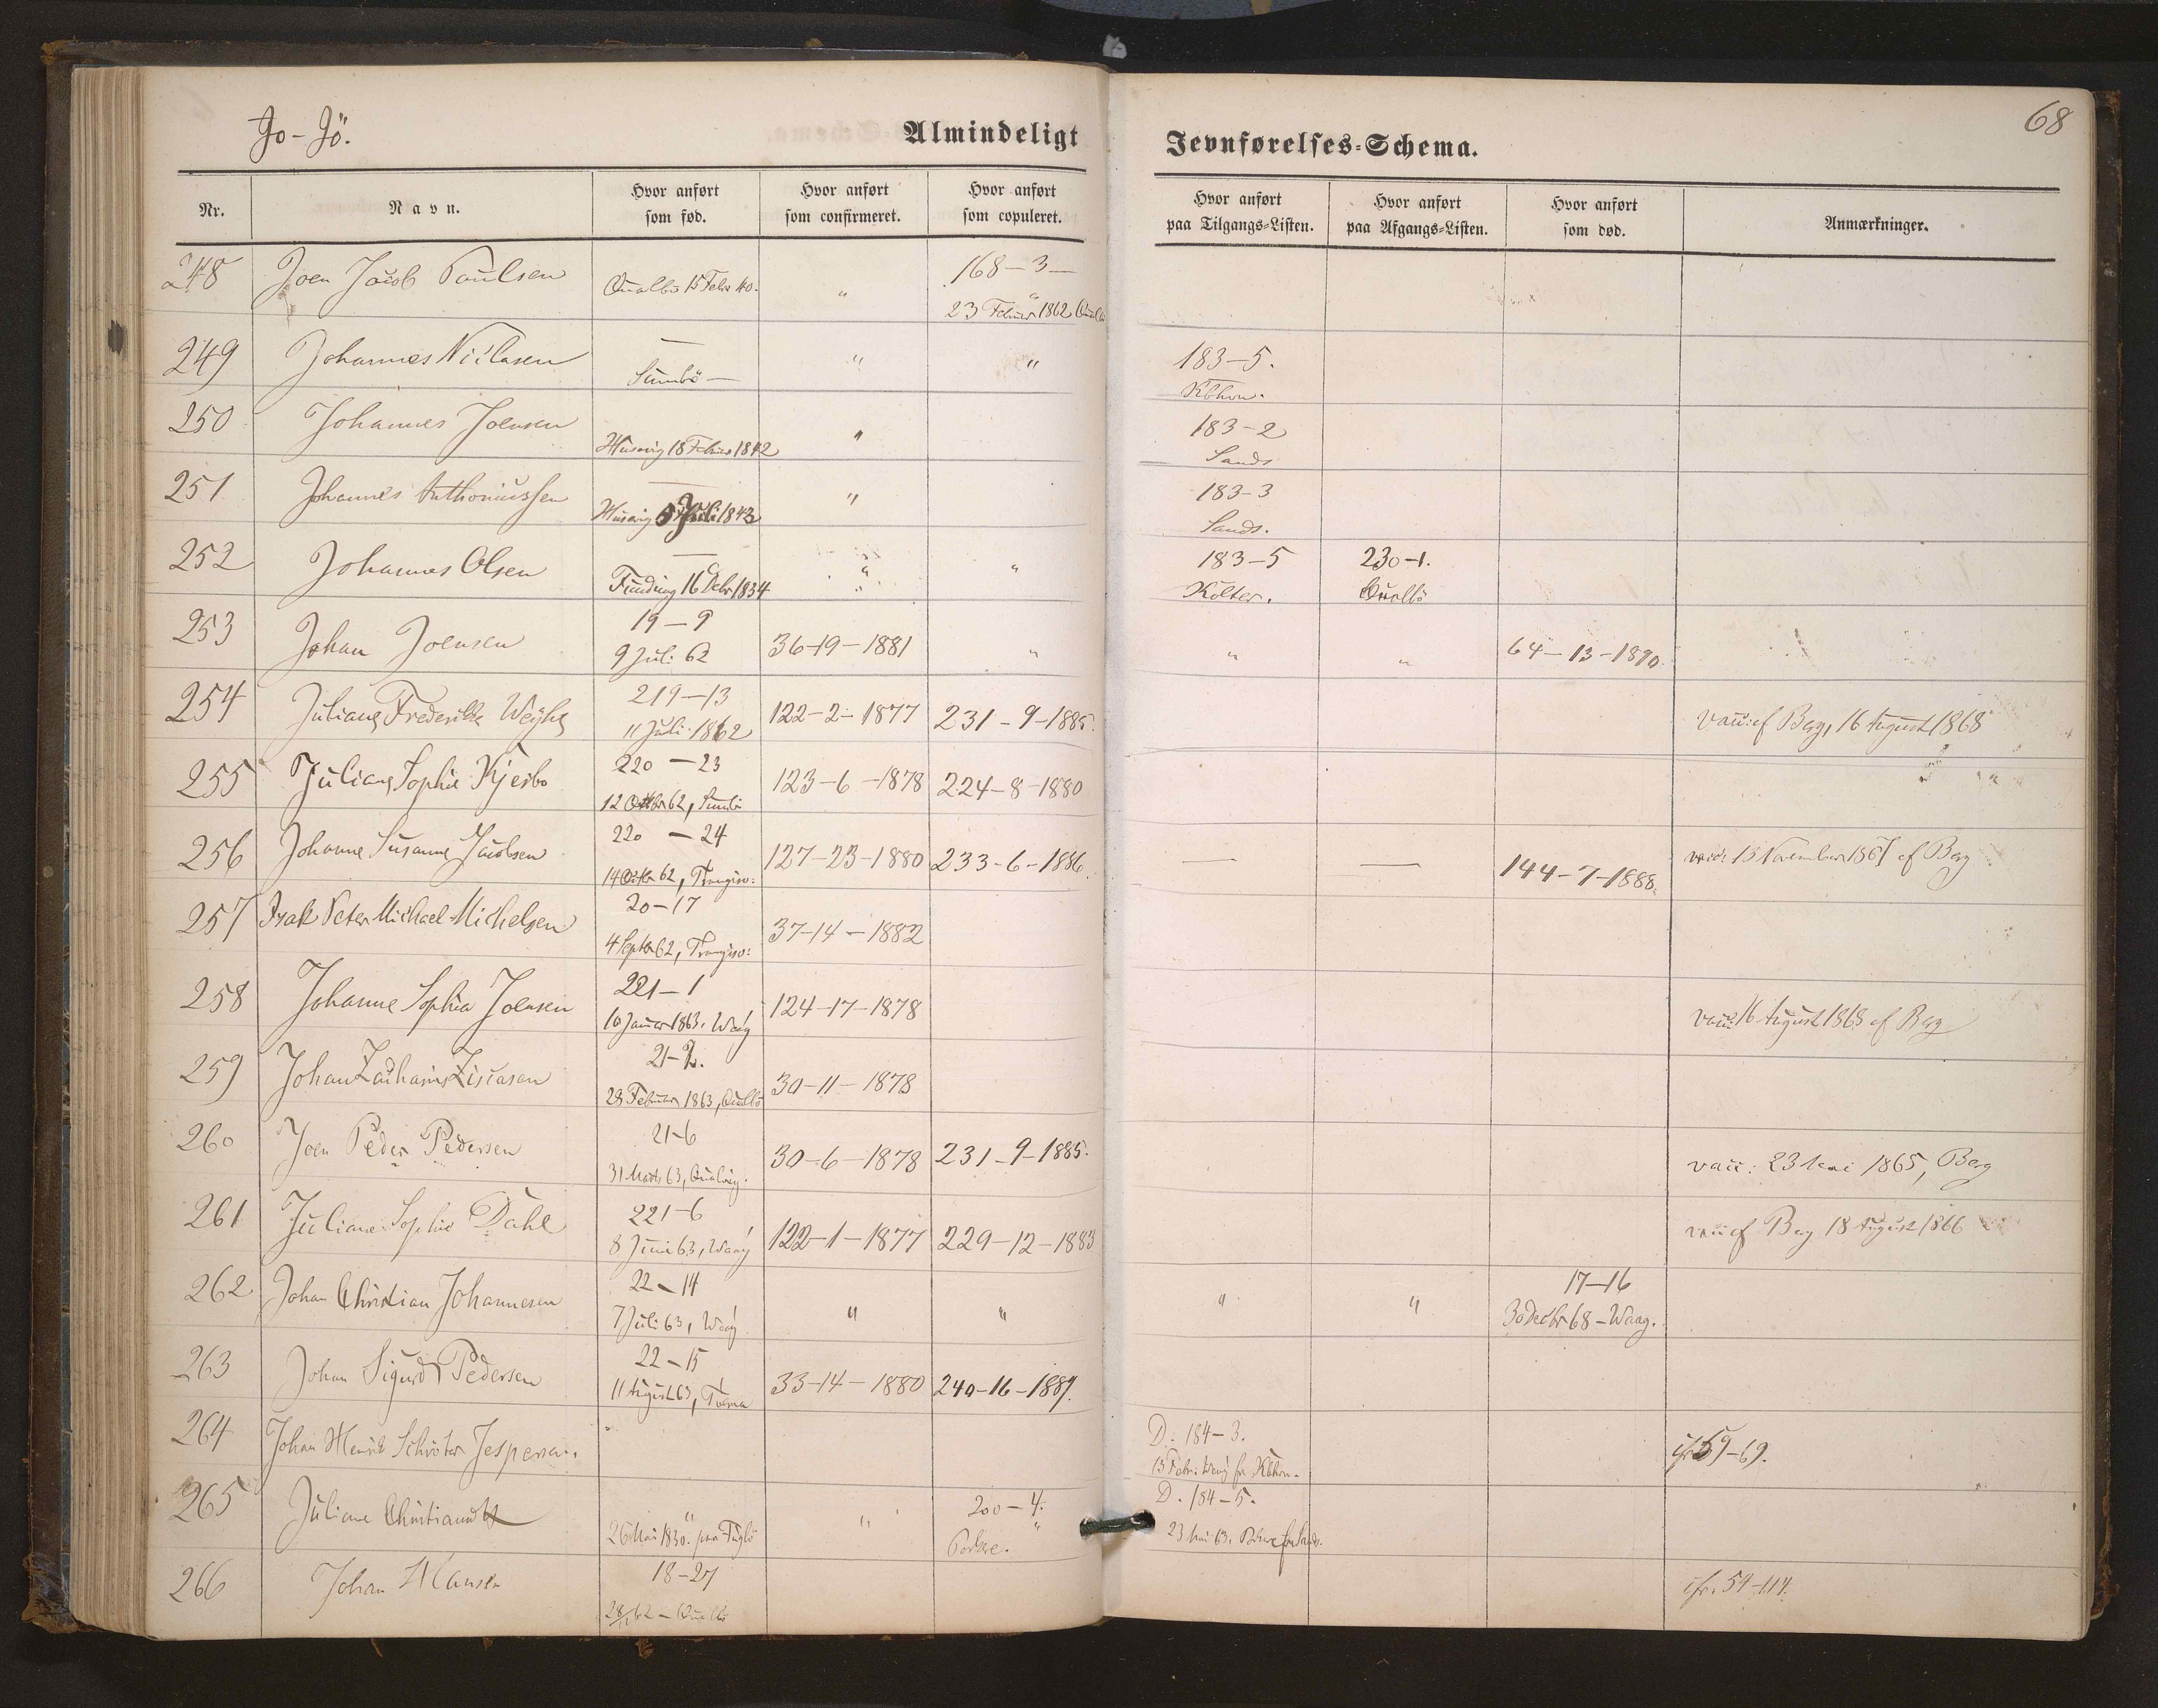 Jo - Jö.
Almindeligt
Jevnførelses-Schema.
68
Nr.
Navn.
Hvor anført som fød.
Hvor anført som confirmeret.
Hvor anført som copuleret.
Hvor anført paa Tilgangs-Listen.
Hvor anført paa Afgangs-Listen.
Hvor anført som død.
Anmærkninger.
248 Joen Jacob Paulsen 168-3-
Qualbö 15 Febr 40. " "
23 Februar 1862 Qualbö
249 Johannes Niclasen — " " 183-5.
Sumbö — Kbhvn.
250 Johannes Joensen " 183-2
Husevig 18 Februar 1842 Sands
251 Johannes Anthoniussen — " 183-3
Husevig 5 Juli 1843 Sands.
252 Johannes Olsen — " " 183-5 230-1.
Funding 16 Debr 1834 Kolter. Qualbö
253 Johan Joensen 19-9 36-19-1881 " " " 64-13-1890.
9 Juli 62
254 Juliane Frederikke Weyhe 219-13 122-2-1877 231-9-1885. vacc: af Berg, 16 August 1868
11 Juli 1862
255 Juliane Sophie Kjerbo 220-23 123-6-1878 224-8-1880
12 Octbr 62, Sumbö
256 Johanne Susanne Jacobsen 220-24 127-23-1880 233-6-1886. — — 144-7-1888. vacc: 13 November 1867 af Berg
14 Octbr 62, Trangisv:
257 Isak Peter Michael Michelsen 20-17 37-14-1882
4 Septbr 62, Trangisv:
258 Johanne Sophia Joensen 221-1 124-17-1878 vacc: 16 August 1868 af Berg
10 Januar 1863. Waag
259 Johan Zacharias Ziscasen 21-2. 30-11-1878
28 Februar 1863, Qualbö
260 Joen Peder Pedersen 21-6 30-6-1878 231-9-1885. vacc: 23 Mai 1865, Berg
31 Marts 63, Qualvig.
261 Juliane Sophie Dahl 221-6 122-1-1877 229-12-1883 vacc af Berg 18 August 1866
8 Juni 63, Waag
262 Johan Christian Johannesen 22-14 " " " " 17-16
7 Juli 63, Waag 30 Decbr 68 - Waag.
263 Johan Sigurd Pedersen 22-15 33-14-1880 240-16-1889.
11 August 63, Tværaa
264 Johan Henrik Schröter Jespersen. D. 184-3. cfr 59-69.
13 Febr. Waag fra Kbhvn.
265 Juliane Christiane " 200-4. D. 184-5.
26 Mai 1830. paa Fuglö Porkere. 23 Mai 63. Porkere fra Sands.
266 Johan Hansen 18-27 cfr. 54-114.
62 - Qualbö